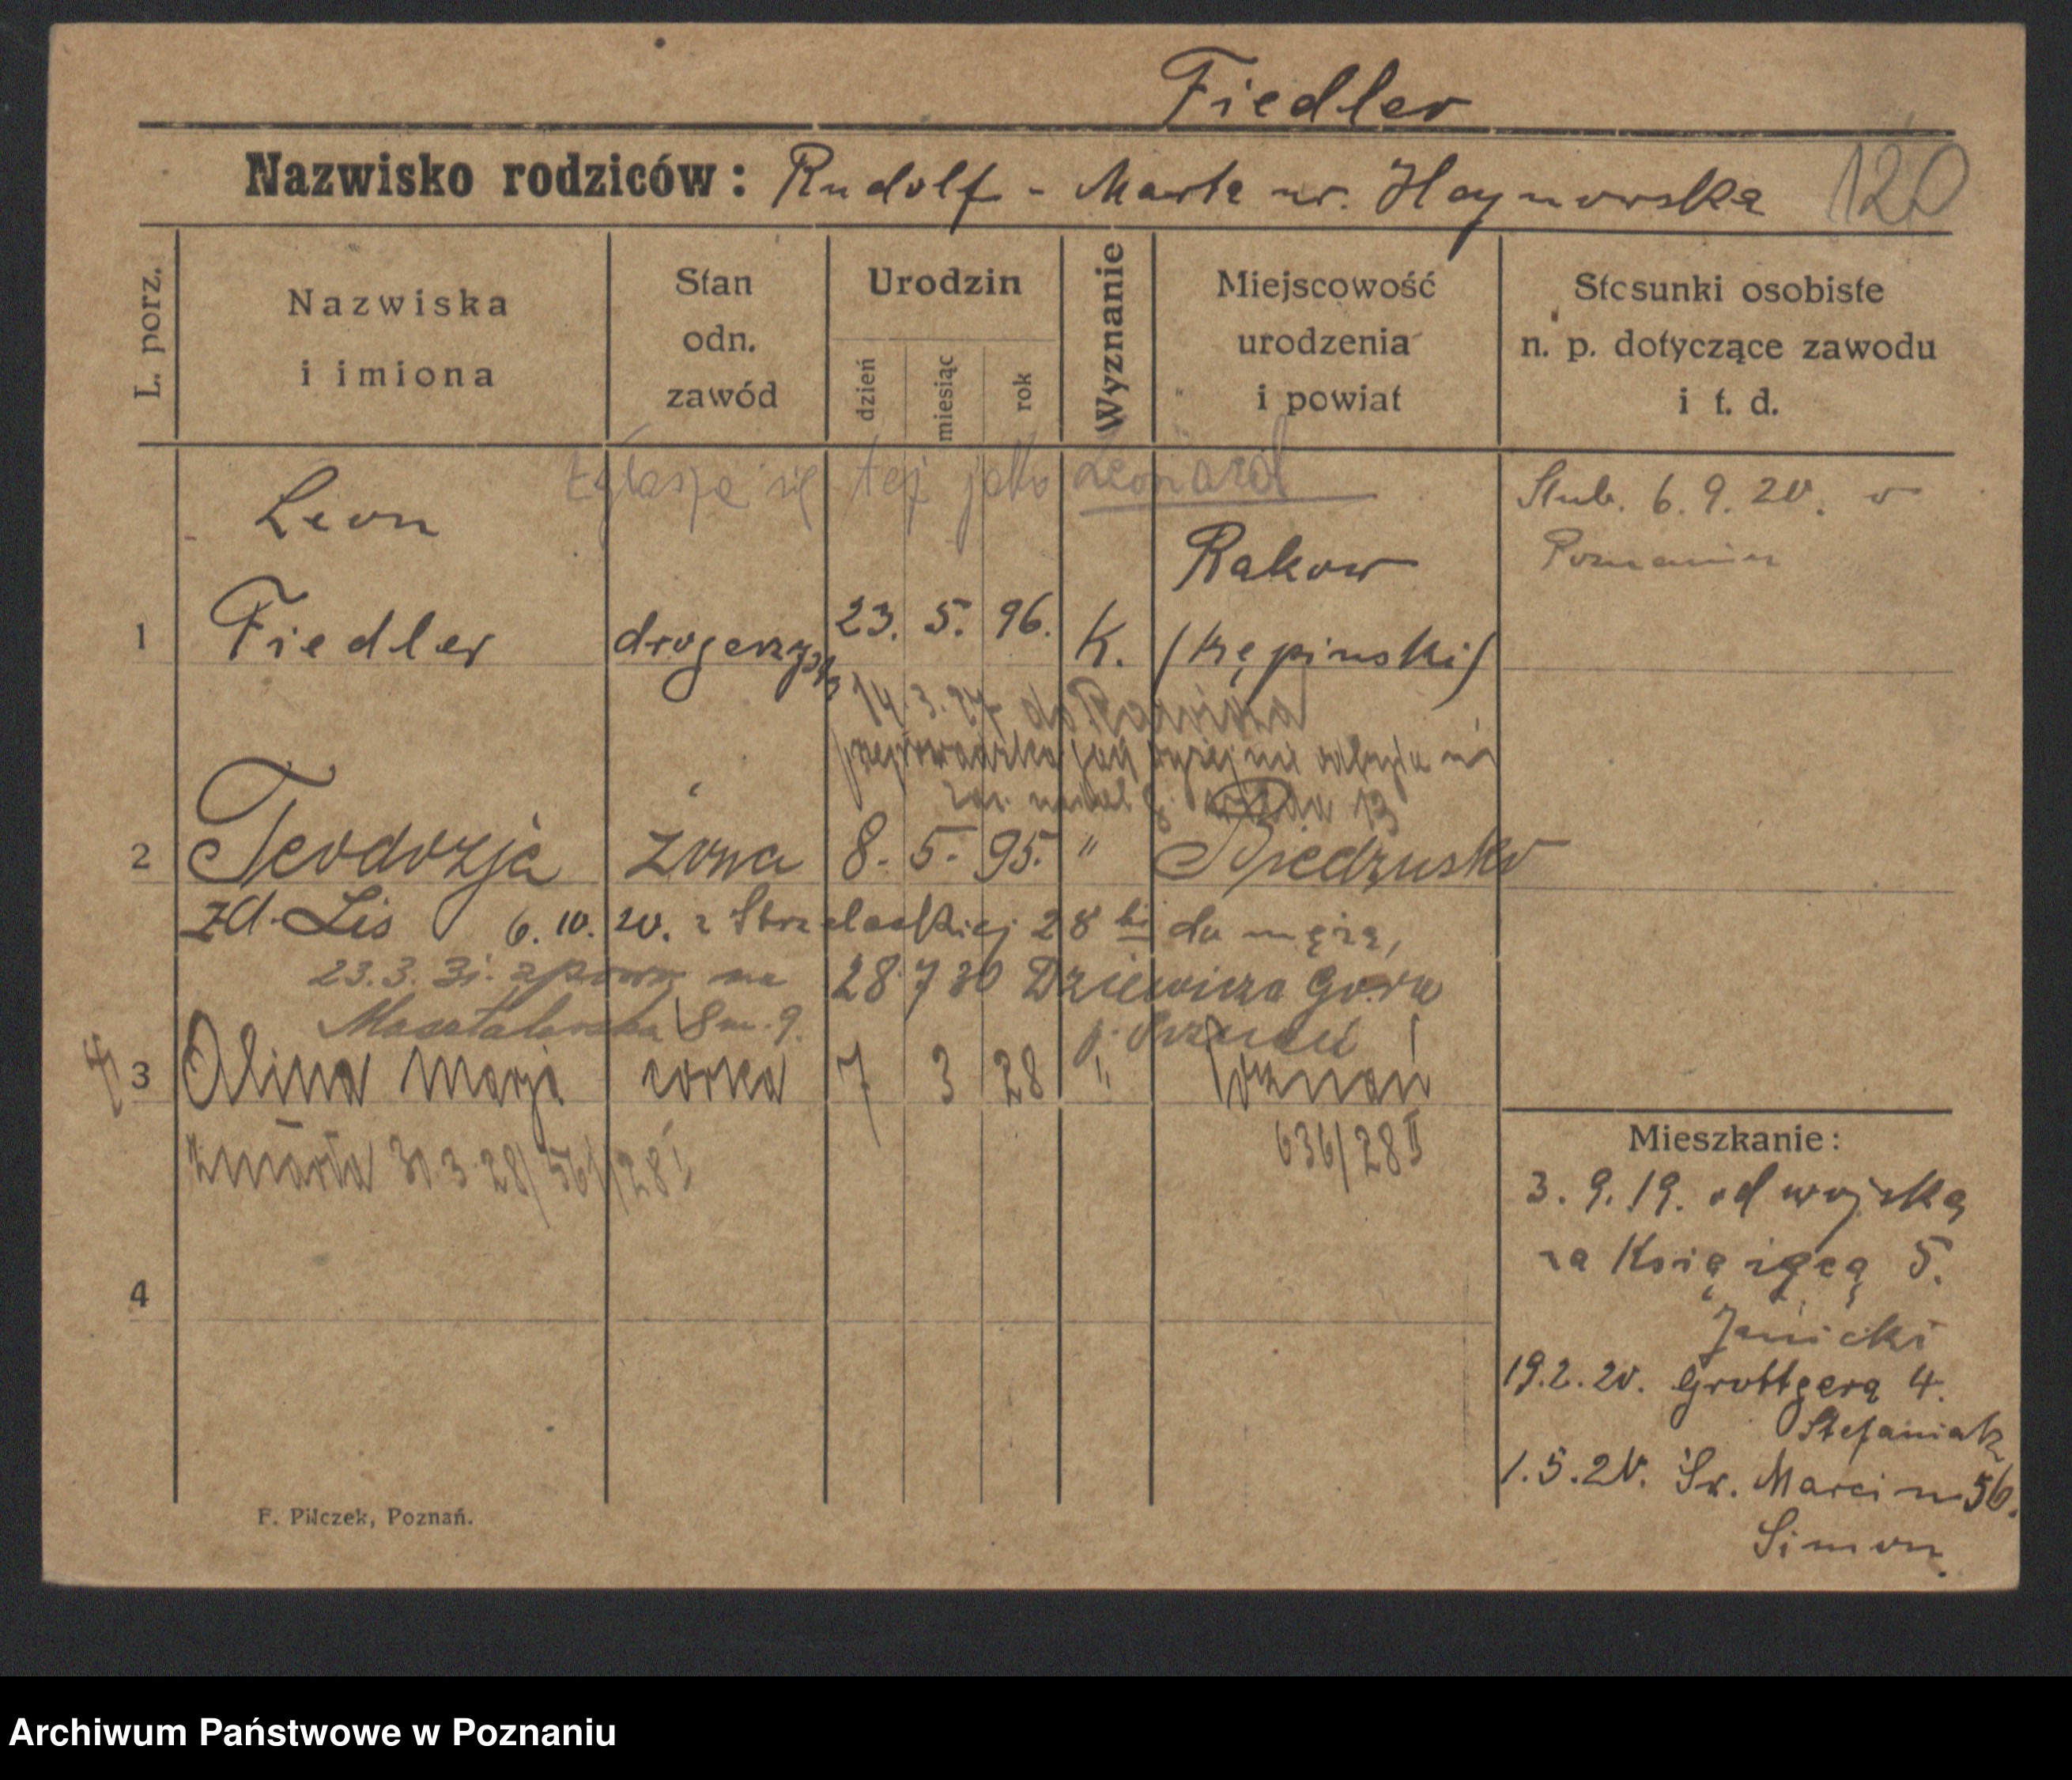 Fiedler
Nazwisko rodziców: Rudolf - Marta ur. Haynowska 120
L. porz.
Nazwiska i imiona
Stan odn. zawód
Urodzin
dzień miesiąc rok
Wyznanie
Miejscowość urodzenia i powiat
Stosunki osobiste n. p. dotyczące zawodu i t. d.
zgłasza się też jako Leonard
Leon
Rakow
Slub. 6. 9. 20. w
Poznaniu
1 Fiedler drogerzysta 23. 5. 96. K. (kępinski)
14. 3. 27 do Rawicza
przeprowadzka jak wyżej nie odbyła się
13
2 Teodozja żona 8. 5. 95. " Biedrusko
zd. Lis 6. 10. 20. z Strzeleckiej 28 do męża,
23. 3. 31. zpowr. na 28 7 30 Dziewicza Gora
Masztalarska 8 m. 9. p. Poznań
3 Alina Marja corka 7 3 28 " Poznań
zmarła 30. 3. 28/561/28 I 636/28 II
4
Mieszkanie:
3. 9. 19. od wojska
za Książęcą 5.
Janicki
19. 2. 20. Grottgera 4.
Stefaniak
1. 5. 20. Św. Marcin 56.
Simon.
F. Pilczek, Poznań.
Archiwum Państwowe w Poznaniu